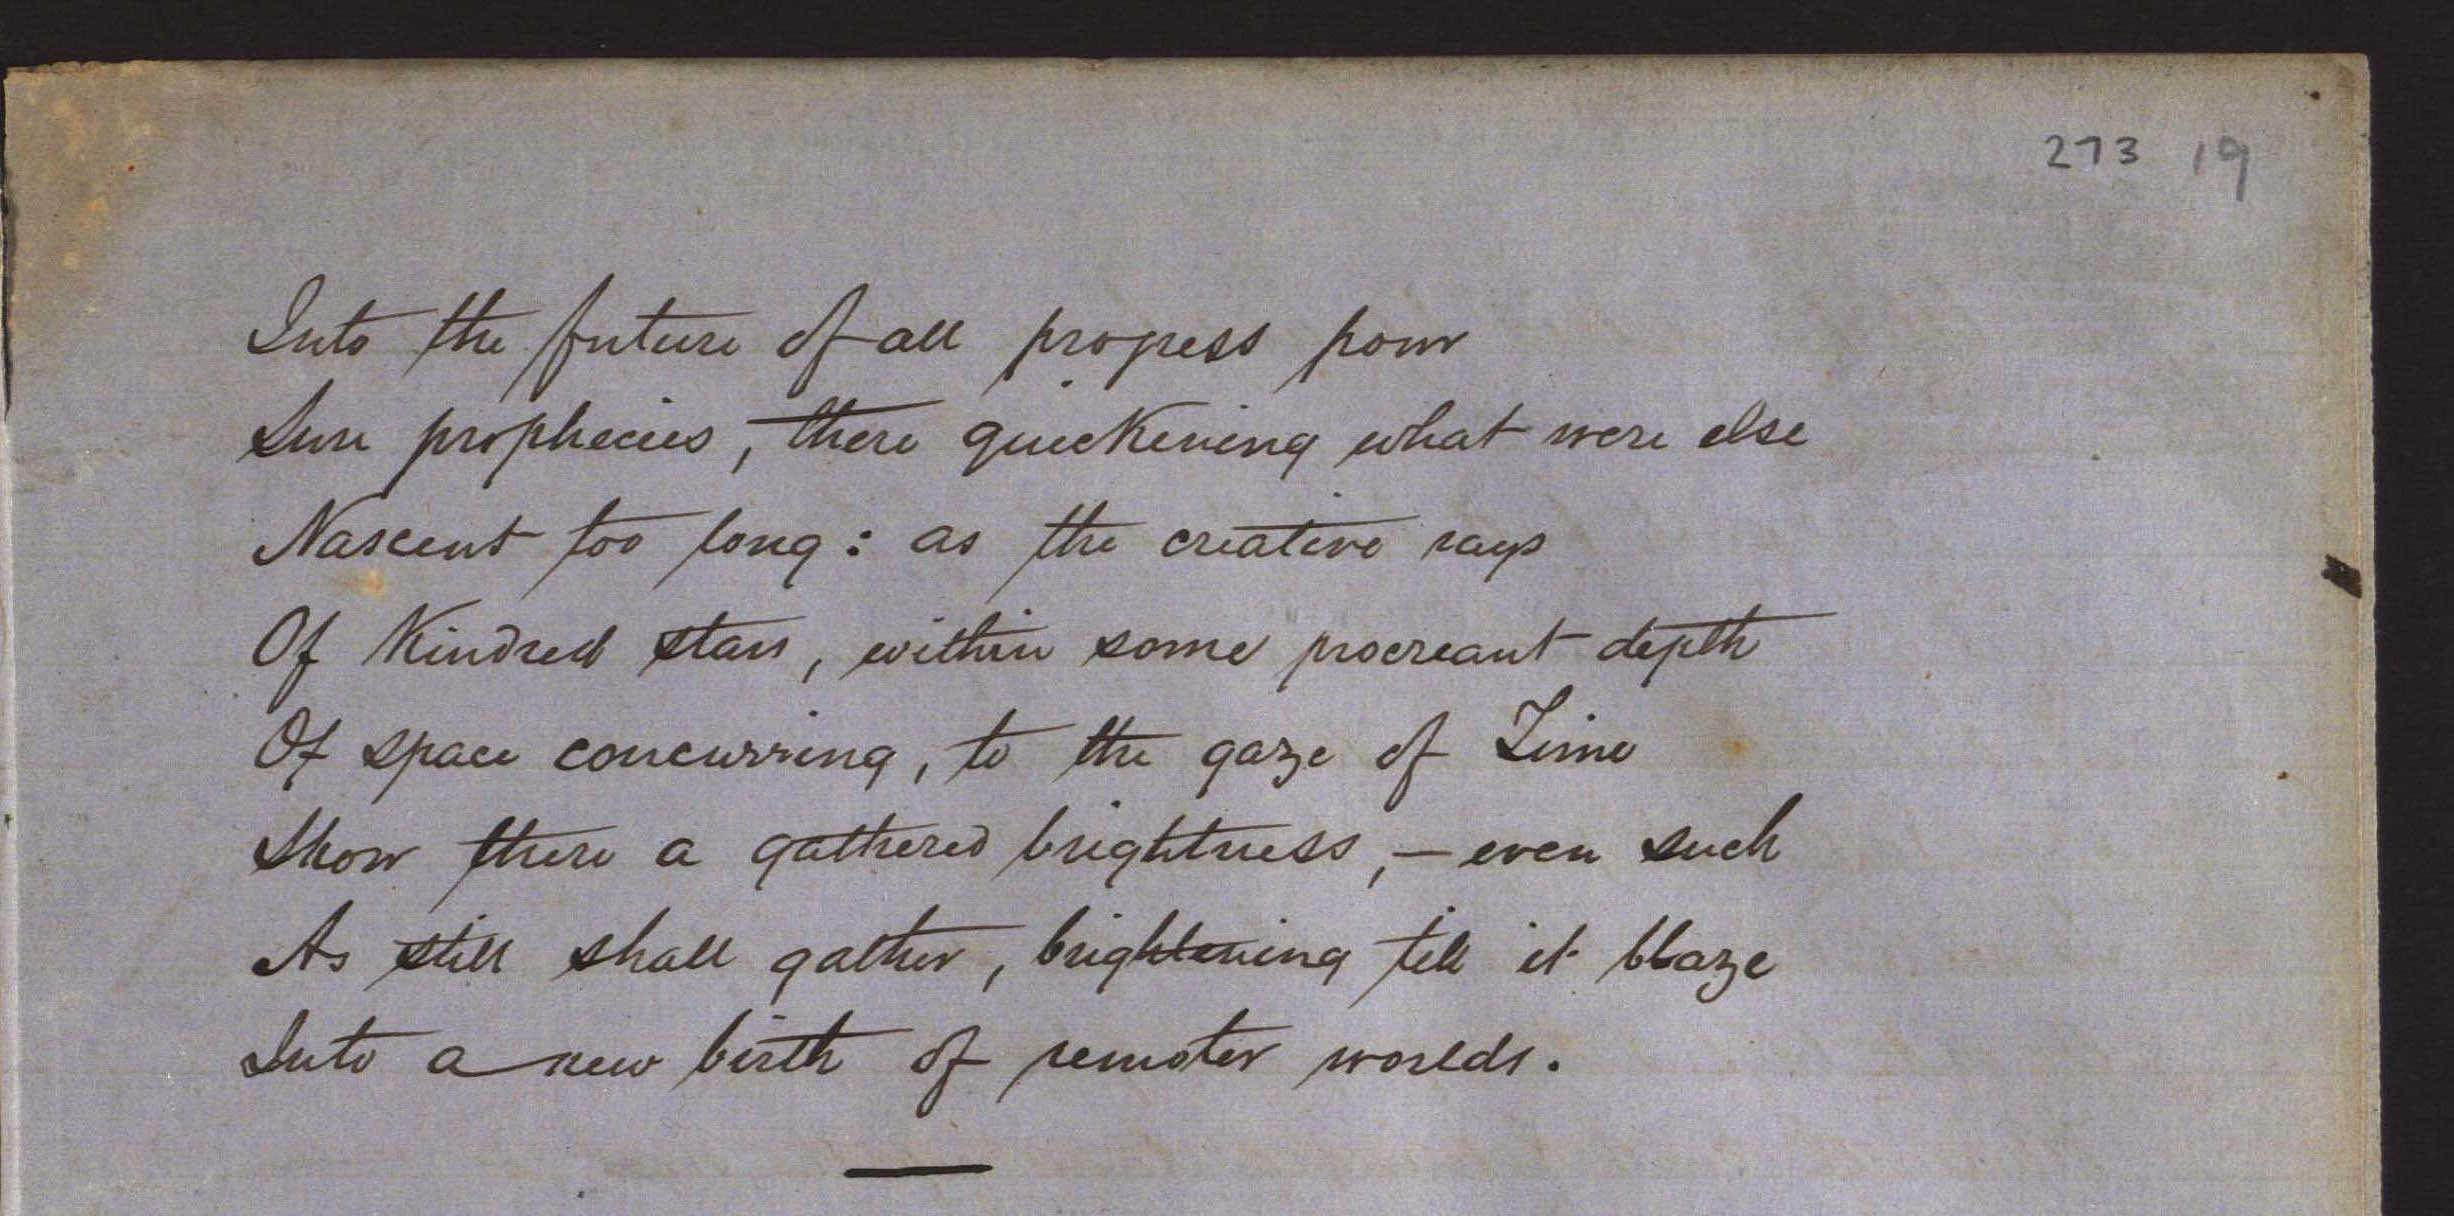 273 19
Into the future of all progress pour
Sure prophecies, there quickening what were else
Nascent too long: as the creative rays
Of Kindred stars, within some procreant depth
Of space concurring, to the gaze of Time
Show there a gathered brightness,—even such
As still shall gather, brightening till it blaze
Into a new birth of remoter worlds.